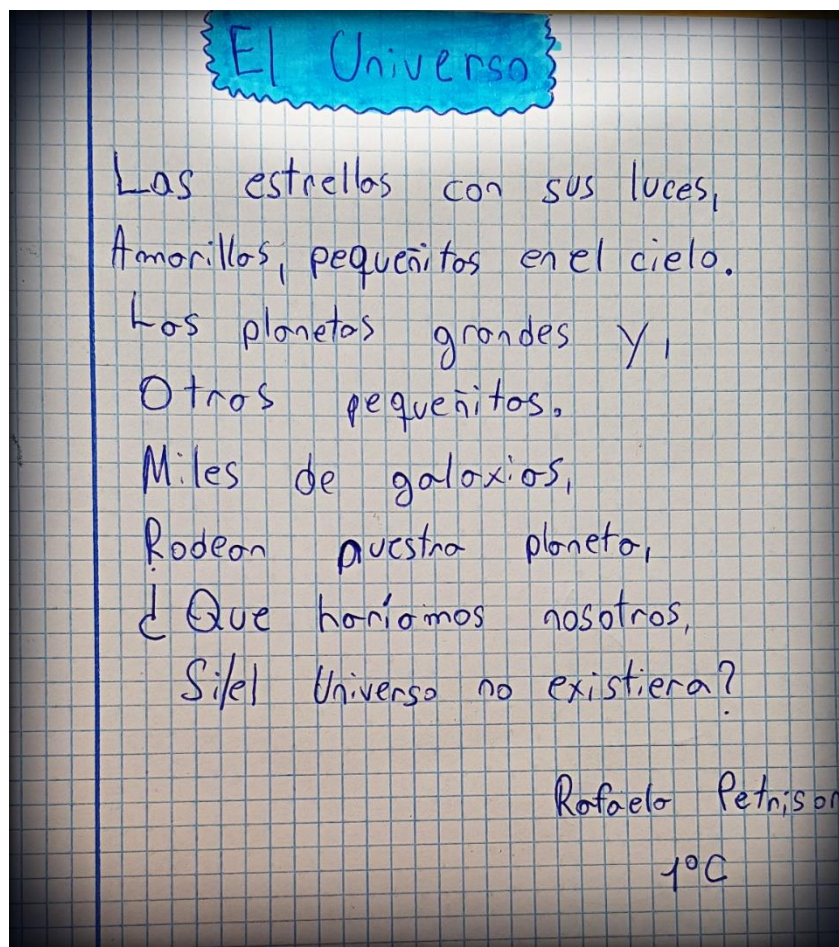 El Universo
Las estrellas con sus luces,
Amarillas, pequeñitas en el cielo.
Los planetas grandes y,
Otros pequeñitos.
Miles de galaxias,
Rodean nuestro planeta,
¿Que haríamos nosotros,
Si/el Universo no existiera?
Rafaela Petrisor
1ºC